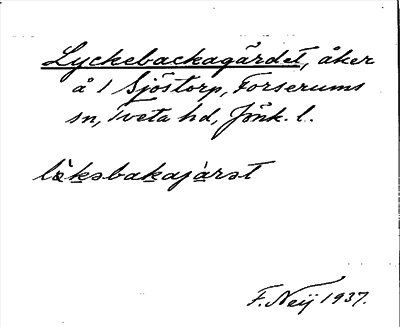 Lyckebackagärdet, åker
å 1 Sjöstorp, Forserums
sn, Tveta hd, Jönk. l.
lòksbakajàrst
F. Neij 1937.